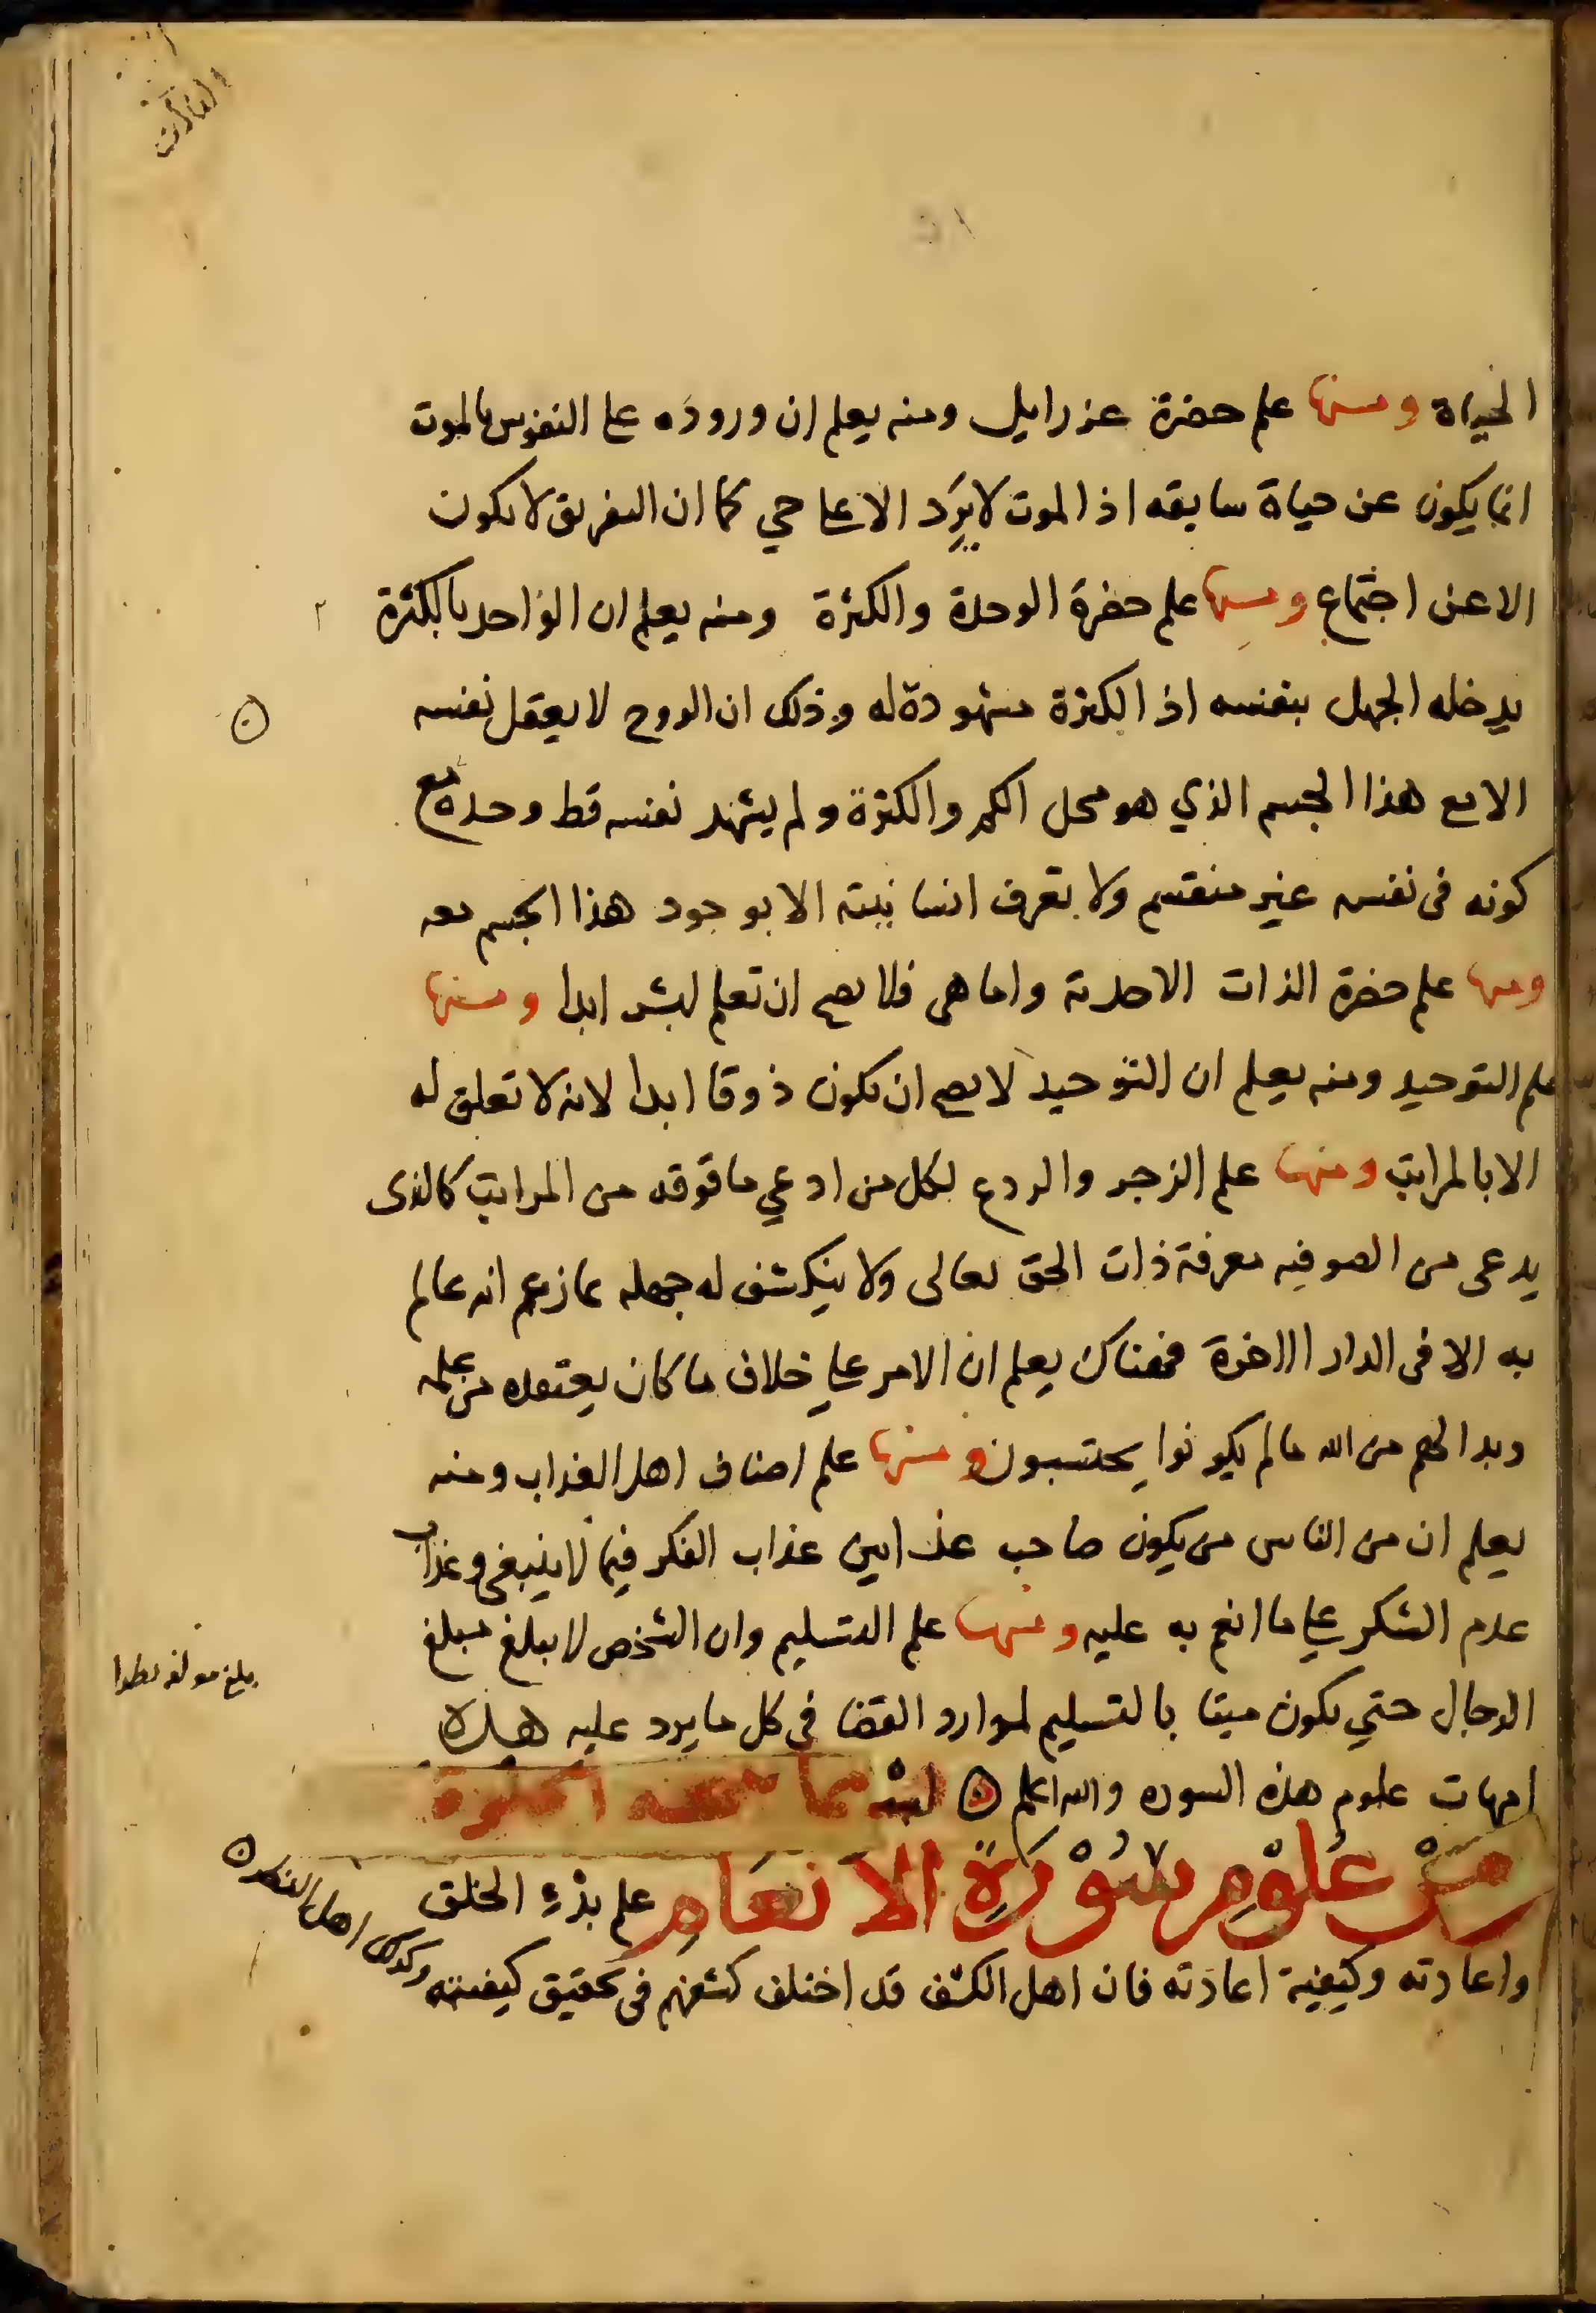 الحياة ومنها علم حضرة عزرايل ومنه يعلم ان وروده على النفوس بالموت
انما يكون عن حياة سابقه اذ الموت لا يَرِد الا على حي كما ان التفريق لا يكون
الا عن اجتماع ومنها علم حضرة الوحدة والكثرة ومنه يعلم ان الواحد بالكثرة
يدخله الجهل بنفسه اذ الكثرة مشهودة له وذلك ان الروح لا يعقل نفسه
الا مع هذا الجسم الذي هو محل الكم والكثرة ولم يشهد نفسه قط وحده مع
كونه فى نفسه غير منقسم ولا يعرف انسانيته الا بوجود هذا الجسم معه
ومنها علم حضرة الذات الاحدية واما هى فلا يصح ان تعلم لبشر ابدا ومنها
علم التوحيد ومنه يعلم ان التوحيد لا يصح ان يكون ذوقا ابدا لانه لا تعلق له
الا بالمراتب ومنها علم الزجر والردع لكل من ادعي ما فوقه من المراتب كالذى
يدعى من الصوفيه معرفة ذات الحق تعالى ولا ينكشف له جهله بما زعم انه عالم
به الا فى الدار الاخرة فهناك يعلم ان الامر علي خلاف ما كان يعتقده من علمه
وبدا لهم من الله ما لم يكونوا يحتسبون ومنها علم اصناف اهل العذاب ومنه
يعلم ان من الناس من يكون صاحب عذابين عذاب الفكر فيما لا ينبغى وعذاب
عدم الشكر علي ما انعم به عليه ومنها علم التسليم وان الشخص لا يبلغ مبلغ
الرجال حتي يكون ميتا بالتسليم لموارد القضا في كل ما يرد عليه هذه
امهات علوم هذه السوره والله اعلم
من عُلوْمِ سُوْرَةِ الانعَامِ علم بدْءِ الخلق
واعادته وكيفية اعادته فان اهل الكشف قد اختلف كشفهم فى تحقيق كيفيته
وكذلك اهل النظر
بلغ مولفه